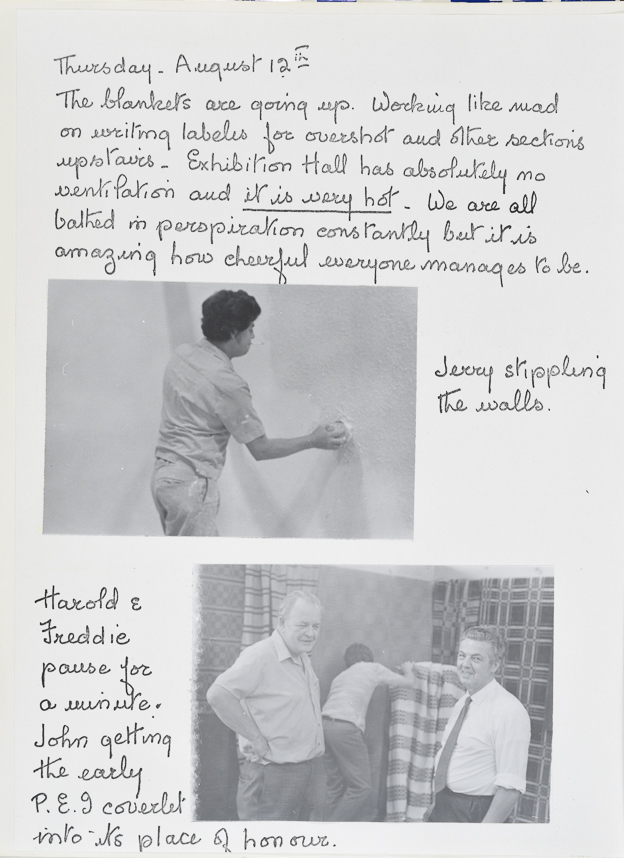 Thursday - August 12th
The blankets are going up. Working like mad
on writing labels for overshot and other sections
upstairs - Exhibition Hall has absolutely no
ventilation and it is very hot - We are all
bathed in perspiration constantly but it is
amazing how cheerful everyone manages to be.
Jerry stippling
the walls.
Harold &
Freddie
pause for
a minute.
John getting
the early
P.E.I coverlet
into its place of honour.